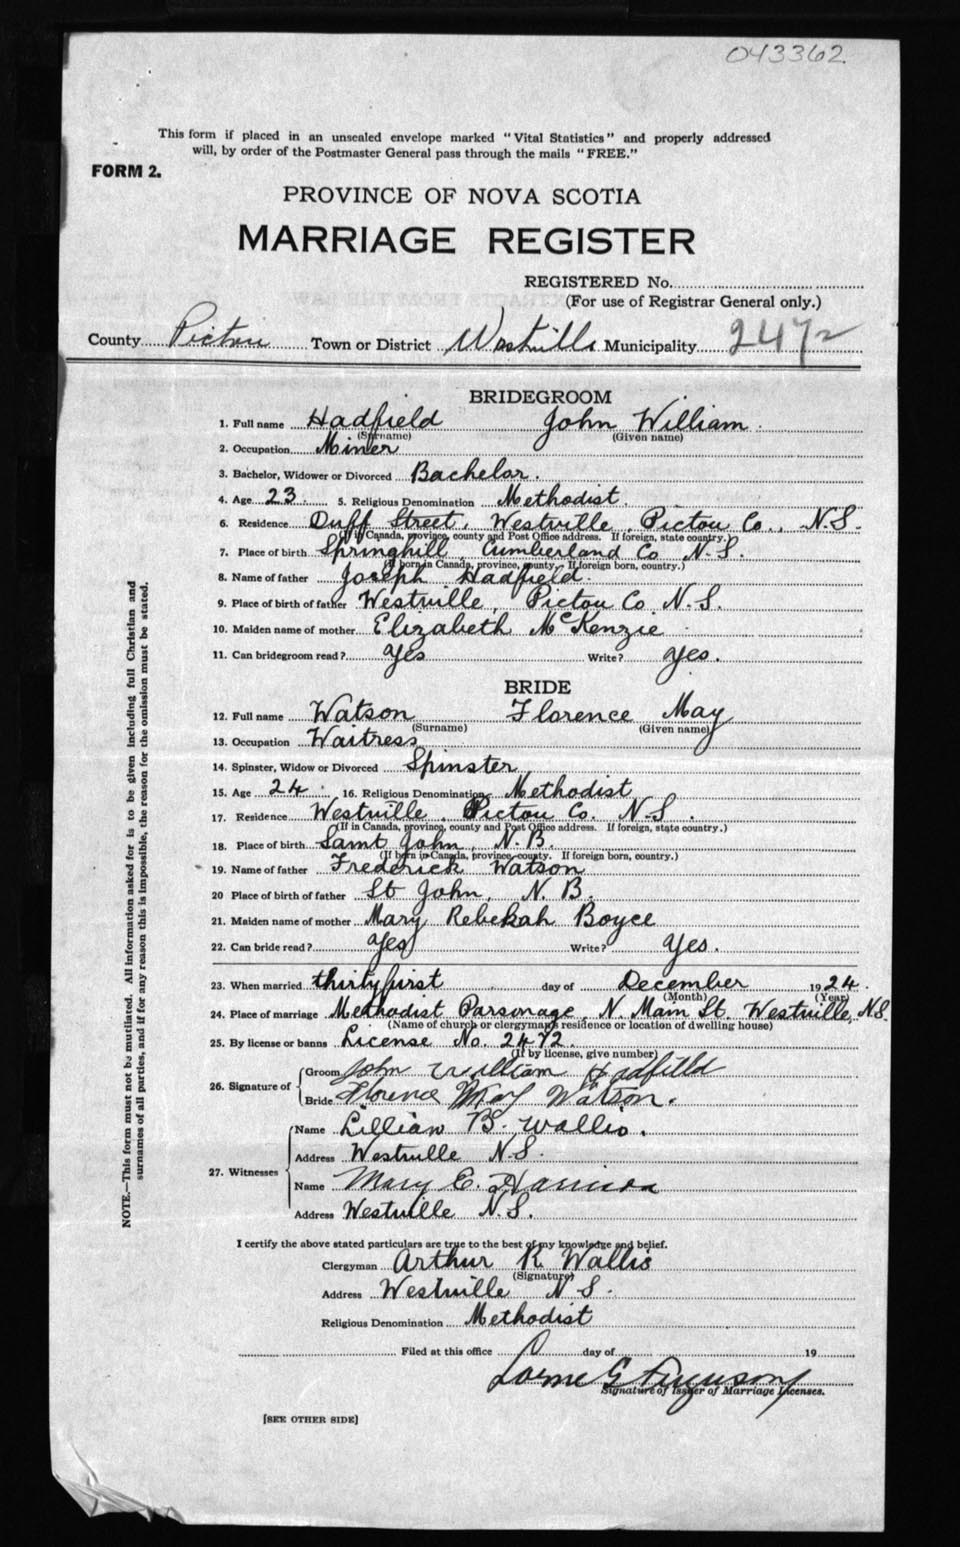 043362
This form if placed in an unsealed envelope marked "Vital Statistics" and properly addressed
will, by order of the Postmaster General pass through the mails "FREE."
FORM 2.
PROVINCE OF NOVA SCOTIA
MARRIAGE REGISTER
REGISTERED No.
(For use of Registrar General only.)
County Pictou Town or District Westville Municipality 2472
BRIDEGROOM
1. Full name Hadfield John William.
(Surname) (Given name)
2. Occupation Miner
3. Bachelor, Widower or Divorced Bachelor.
4. Age 23 5. Religious Denomination Methodist.
6. Residence Duff Street, Westville, Pictou Co., N.S.
(If in Canada, province, county and Post Office address. If foreign, state country.)
7. Place of birth Springhill, Cumberland Co N.S.
(If born in Canada, province, county. If foreign born, country.)
8. Name of father Joseph Hadfield.
9. Place of birth of father Westville, Pictou Co. N.S.
10. Maiden name of mother Elizabeth McKenzie
11. Can bridegroom read? Yes Write? Yes.
BRIDE
12. Full name Watson Florence May
(Surname) (Given name)
13. Occupation Waitress
14. Spinster, Widow or Divorced Spinster
15. Age 24 16. Religious Denomination Methodist
17. Residence Westville, Pictou Co. N.S.
(If in Canada, province, county and Post Office address. If foreign, state country.)
18. Place of birth Saint John, N.B.
(If born in Canada, province, county. If foreign born, country.)
19. Name of father Frederick Watson
20 Place of birth of father St John, N.B.
21. Maiden name of mother Mary Rebekah Boyce
22. Can bride read? Yes Write? Yes.
23. When married thirty first day of December 1924.
(Month) (Year)
24. Place of marriage Methodist Parsonage, N. Main St. Westville, N.S.
(Name of church or clergyman's residence or location of dwelling house)
25. By license or banns License No. 2472.
(If by license, give number)
26. Signature of Groom John William Hadfield
Bride Florence May Watson.
27. Witnesses Name Lillian B. Wallis.
Address Westville N.S.
Name Mary E. Harrison
Address Westville N.S.
I certify the above stated particulars are true to the best of my knowledge and belief.
Clergyman Arthur R. Wallis
(Signature)
Address Westville N.S.
Religious Denomination Methodist
Filed at this office day of 19
Lorne G Ferguson
Signature of Issuer of Marriage Licenses.
[SEE OTHER SIDE]
NOTE.—This form must not be mutilated. All information asked for is to be given including full Christian and
surnames of all parties, and if for any reason this is impossible, the reason for the omission must be stated.